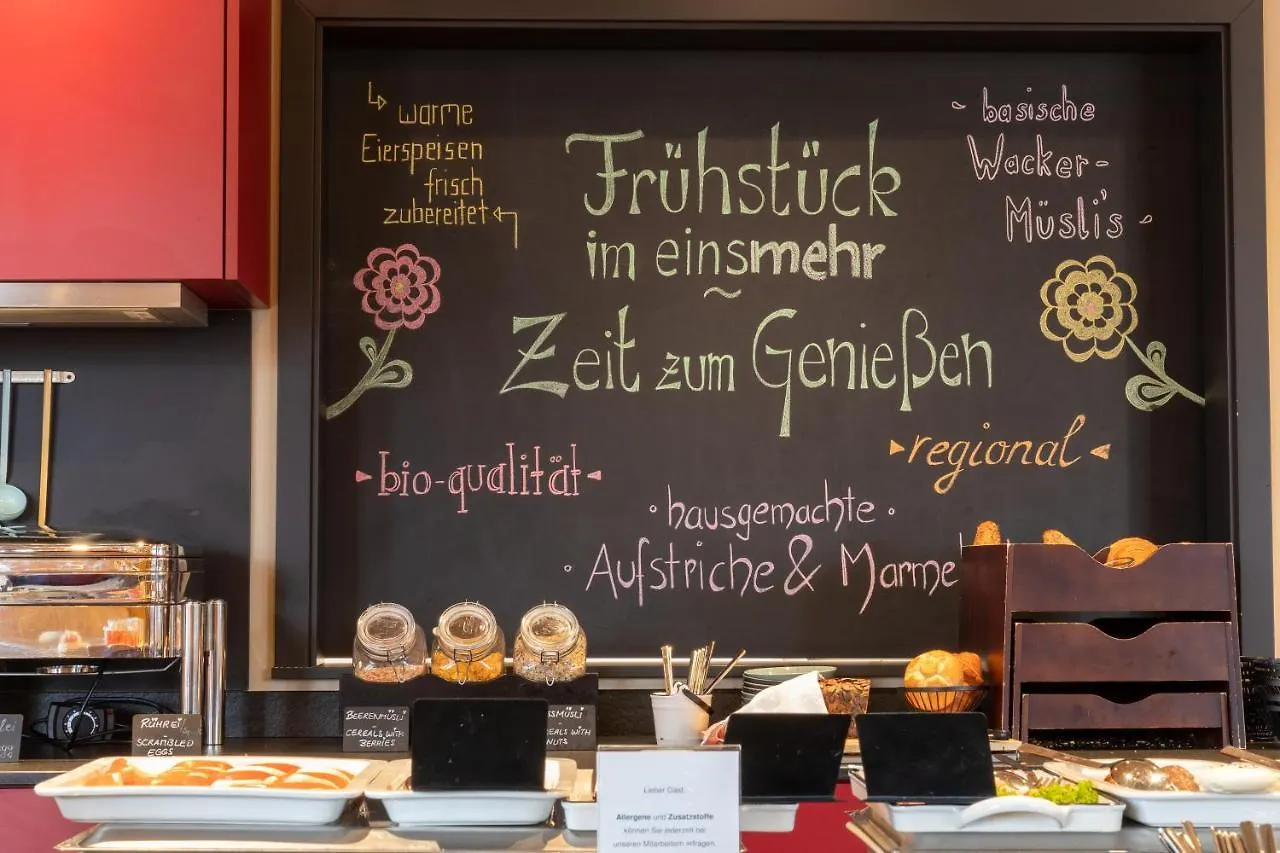 warme
Eierspeisen
frisch
zubereitet
Frühstück
im einsmehr
~
Zeit zum Genießen
~ basische
Wacker-
Müsli's ~
bio-qualität
regional
• hausgemachte •
• Aufstriche & Marme
BEERENMÜSLI
CEREALS WITH
BERRIES
SSMÜSLI
CEREALS WITH
NUTS
RÜHREI
SCRAMBLED
EGGS
Lieber Gast,
Allergene und Zusatzstoffe
können Sie jederzeit bei
unseren Mitarbeitern erfragen.